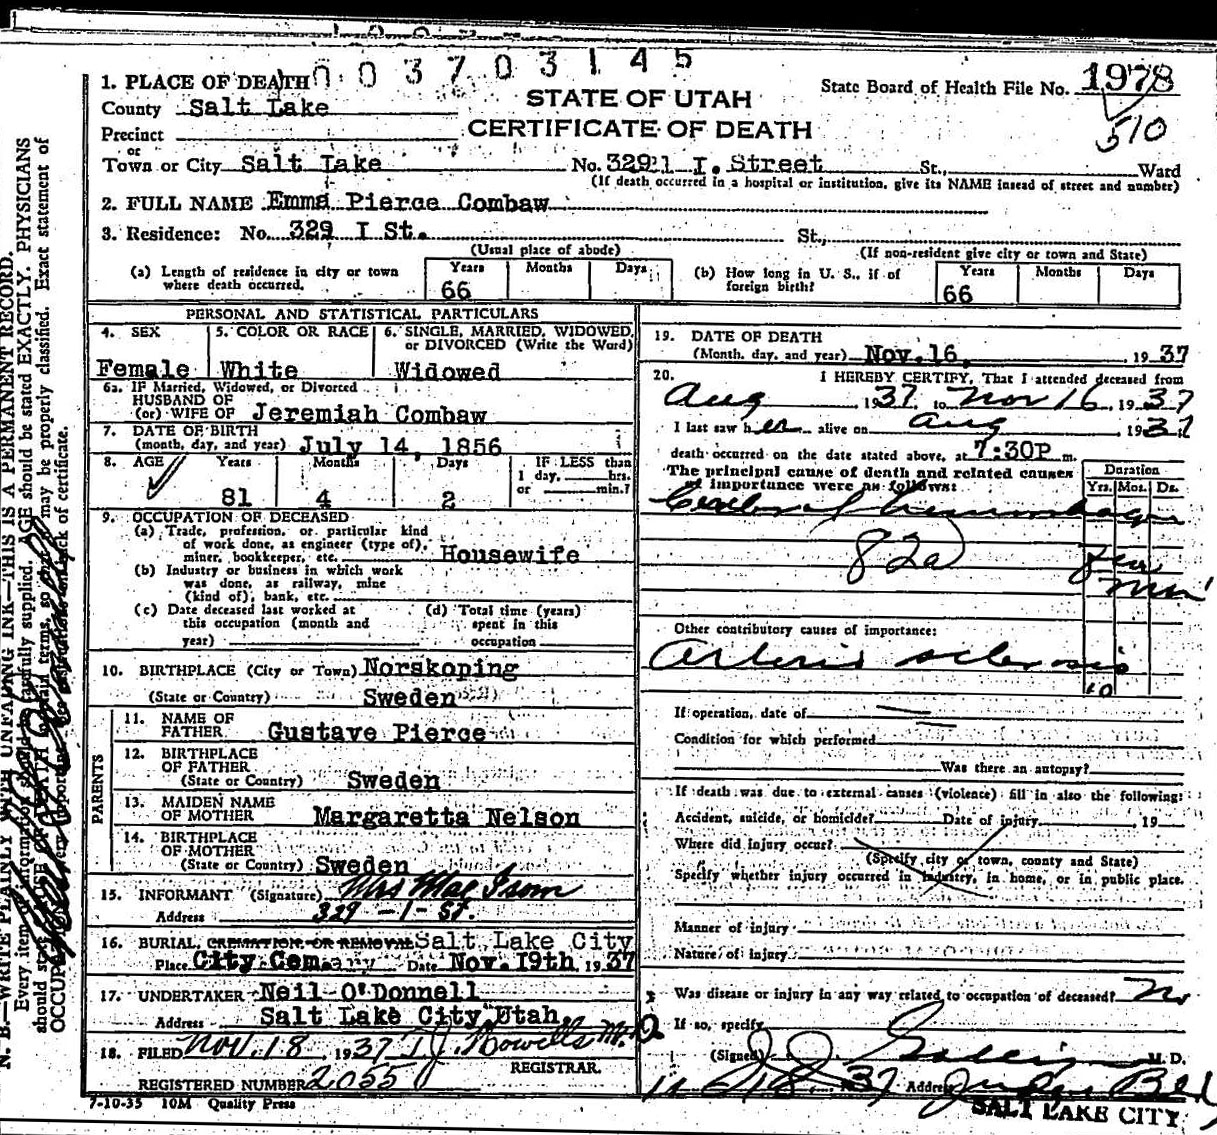 003703145
1. PLACE OF DEATH
State Board of Health File No. 1978
County Salt Lake
STATE OF UTAH
510
Precinct
CERTIFICATE OF DEATH
or
Town or City Salt Lake No. 329 I. Street St., Ward
(If death occurred in a hospital or institution, give its NAME insead of street and number)
2. FULL NAME Emma Pierce Combaw
3. Residence: No. 329 I St. St.,
(Usual place of abode) (If non-resident give city or town and State)
(a) Length of residence in city or town where death occurred. Years 66 Months Days
(b) How long in U. S., if of foreign birth? Years 66 Months Days
PERSONAL AND STATISTICAL PARTICULARS
4. SEX Female
5. COLOR OR RACE White
6. SINGLE, MARRIED, WIDOWED, or DIVORCED (Write the Word) Widowed
6a. IF Married, Widowed, or Divorced
HUSBAND OF
(or) WIFE OF Jeremiah Combaw
7. DATE OF BIRTH
(month, day, and year) July 14, 1856
8. AGE Years 81 Months 4 Days 2
IF LESS than
1 day, hrs.
or min.?
9. OCCUPATION OF DECEASED
(a) Trade, profession, or particular kind
of work done, as engineer (type of),
miner, bookkeeper, etc. Housewife
(b) Industry or business in which work
was done, as railway, mine
(kind of), bank, etc.
(c) Date deceased last worked at
this occupation (month and
year)
(d) Total time (years)
spent in this
occupation
10. BIRTHPLACE (City or Town) Norskoping
(State or Country) Sweden
PARENTS
11. NAME OF
FATHER Gustave Pierce
12. BIRTHPLACE
OF FATHER
(State or Country) Sweden
13. MAIDEN NAME
OF MOTHER Margaretta Nelson
14. BIRTHPLACE
OF MOTHER
(State or Country) Sweden
15. INFORMANT (Signature) Mrs Mae Isom
Address 329 - I - St.
16. BURIAL, CREMATION OR REMOVAL Salt Lake City
Place City Cem. Date Nov. 19th, 1937
17. UNDERTAKER Neil O'Donnell
Address Salt Lake City Utah.
18. FILED Nov. 18, 1937 T. J. Howells M. D.
REGISTRAR.
REGISTERED NUMBER 2055
7-10-35 10M Quality Press
19. DATE OF DEATH
(Month, day, and year) Nov. 16, 1937
20. I HEREBY CERTIFY, That I attended deceased from
Aug 1937 to Nov 16, 1937
I last saw her alive on Aug 1937
death occurred on the date stated above, at 7:30P m.
The principal cause of death and related causes
of importance were as follows:
Duration
Yrs. Mos. Ds.
Cerebral hemorrhage
82a few
min
Other contributory causes of importance:
Arterio sclerosis
10
If operation, date of
Condition for which performed
Was there an autopsy?
If death was due to external causes (violence) fill in also the following:
Accident, suicide, or homicide? Date of injury 19
Where did injury occur?
(Specify city or town, county and State)
Specify whether injury occurred in industry, in home, or in public place.
Manner of injury
Nature of injury
Was disease or injury in any way related to occupation of deceased? No
If so, specify
(Signed) M. D.
11 18 1937 Address Judge Bld
SALT LAKE CITY
N. B.—WRITE PLAINLY WITH UNFADING INK—THIS IS A PERMANENT RECORD.
Every item of information should be carefully supplied. AGE should be stated EXACTLY. PHYSICIANS
should state CAUSE OF DEATH in plain terms, so that it may be properly classified. Exact statement of
OCCUPATION back of certificate.